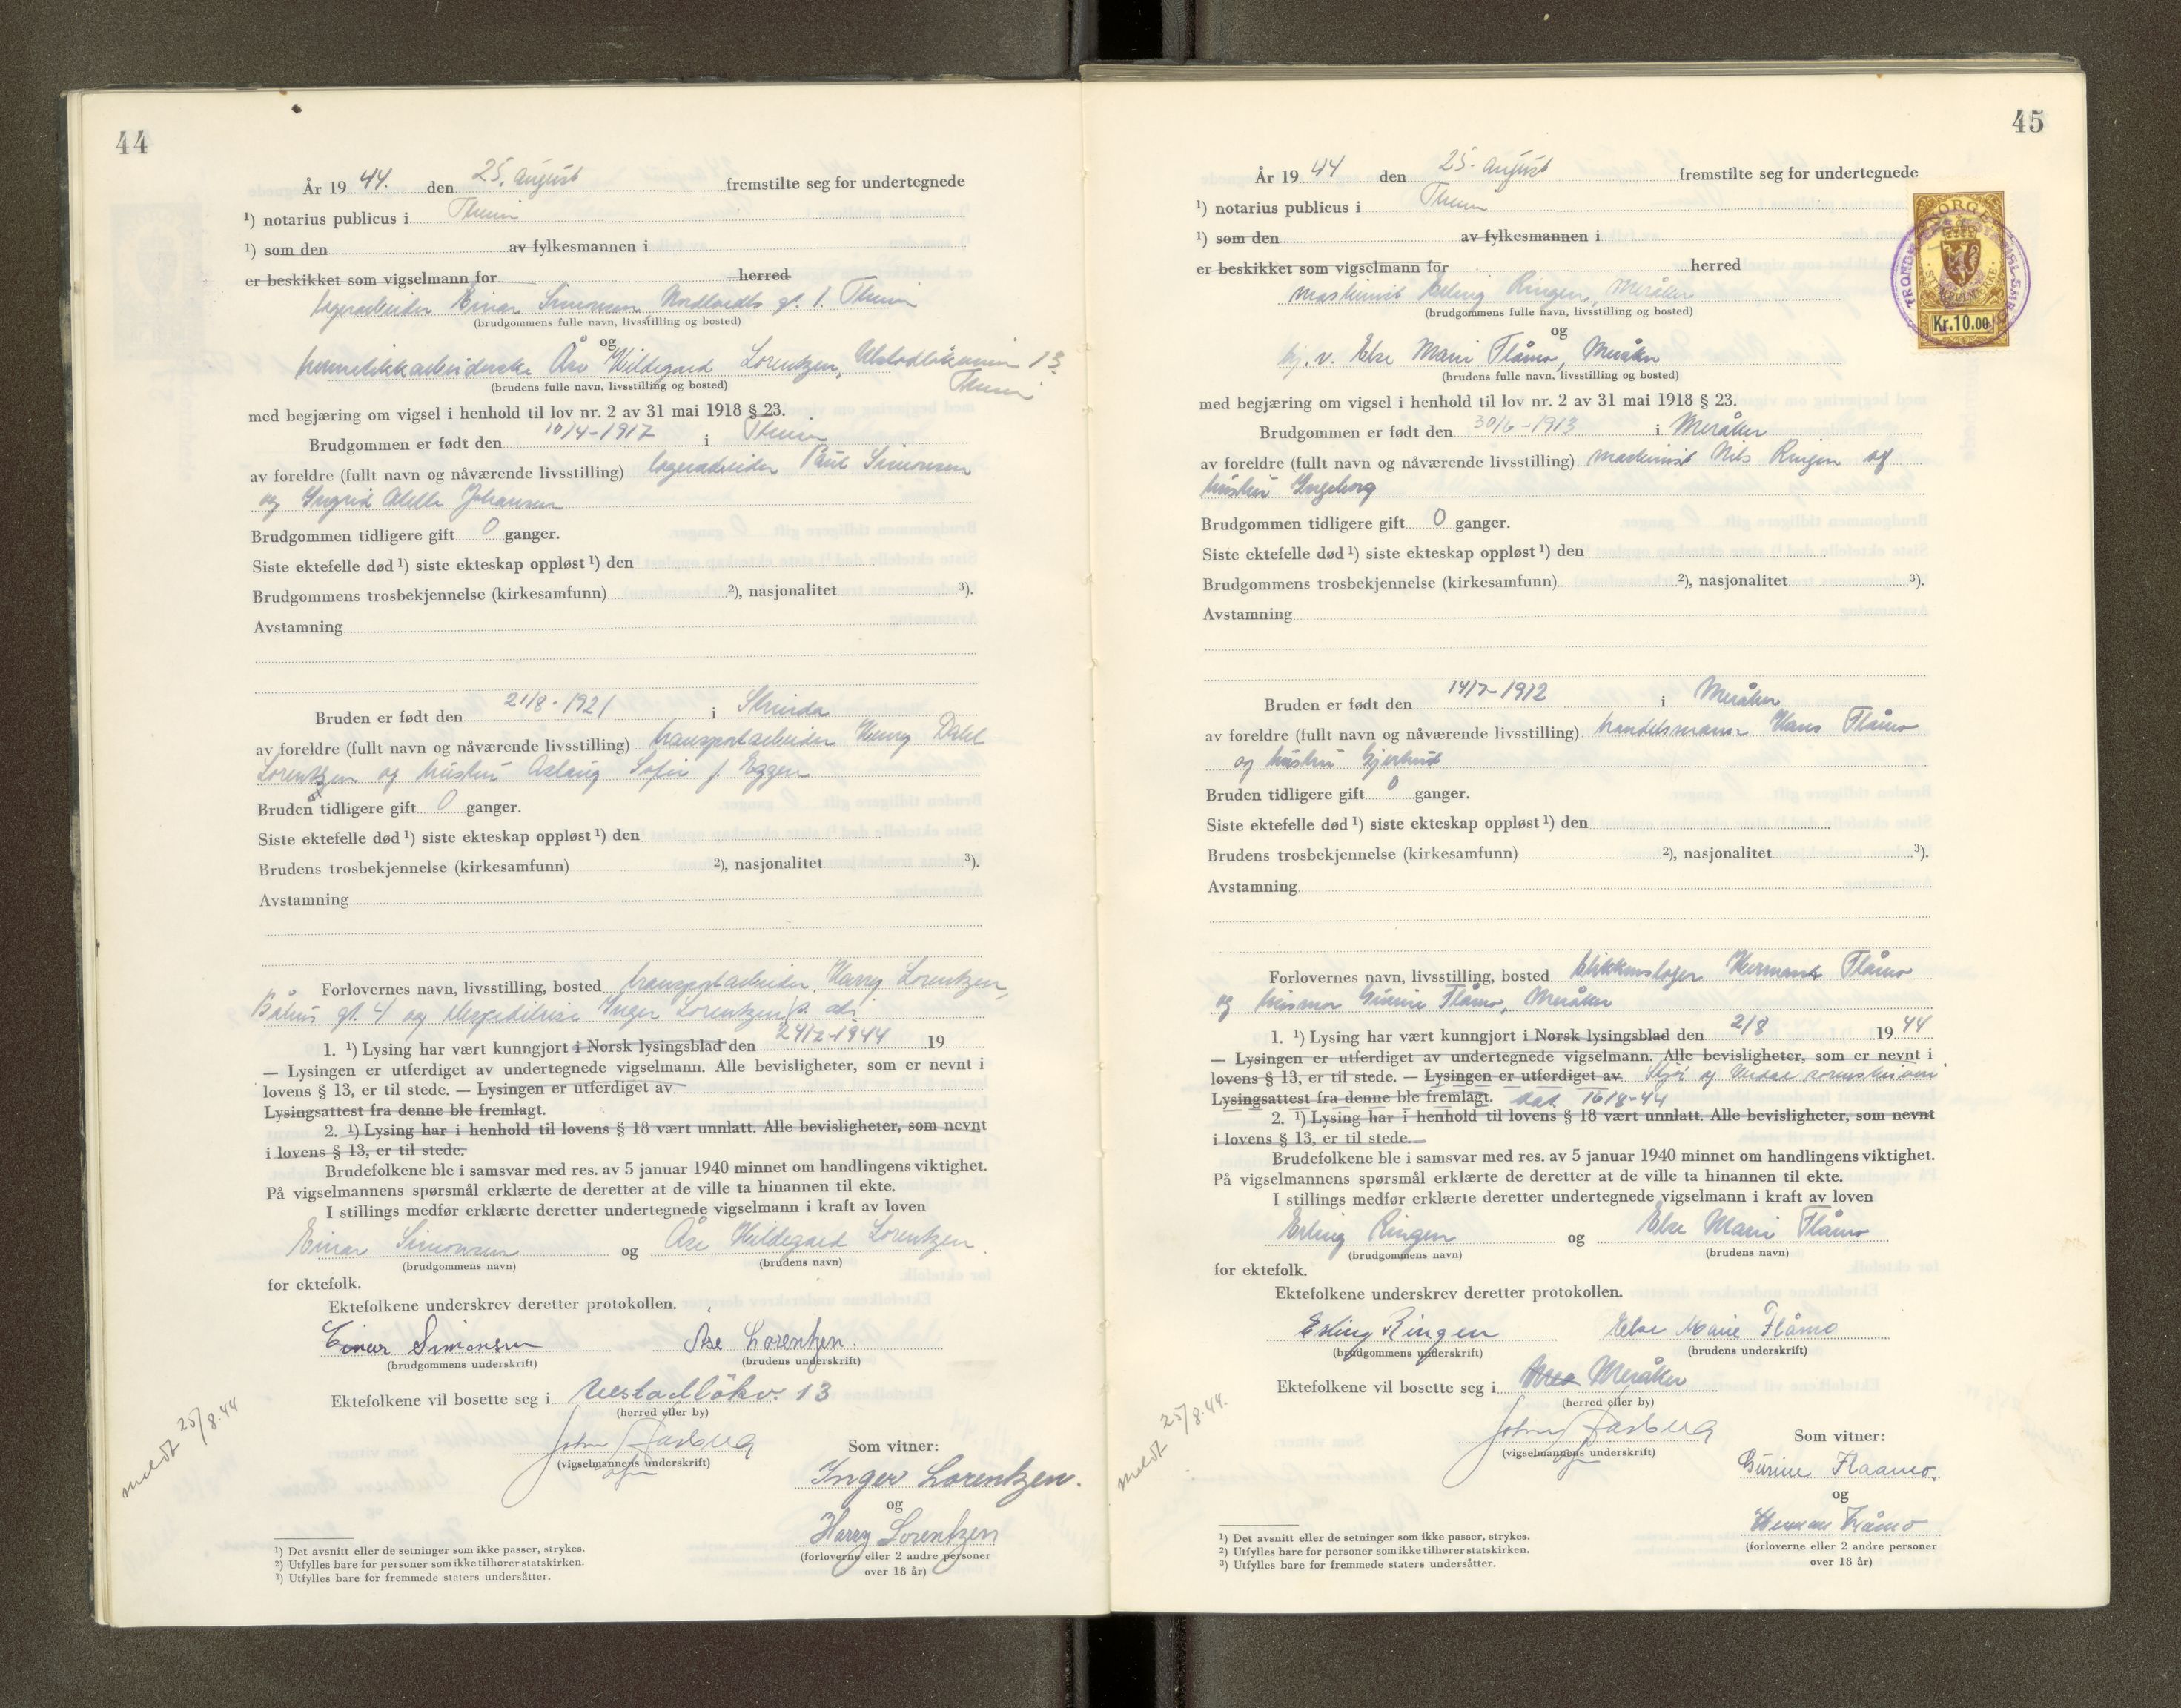 44
År 19 44. den 25. august fremstilte seg for undertegnede
¹) notarius publicus i Thum
¹) som den av fylkesmannen i
er beskikket som vigselmann for herred
lagerarbeider Einar Simonsen gt. 1.
(brudgommens fulle navn, livsstilling og bosted)
og
Hildegard Lorentzen, 13
(brudens fulle navn, livsstilling og bosted)
med begjæring om vigsel i henhold til lov nr. 2 av 31 mai 1918 § 23.
Brudgommen er født den 10/4-1917 i
av foreldre (fullt navn og nåværende livsstilling) lagerarbeider Paul Simonsen
og Ingrid Johansen
Brudgommen tidligere gift 0 ganger.
Siste ektefelle død ¹) siste ekteskap oppløst ¹) den
Brudgommens trosbekjennelse (kirkesamfunn) ²), nasjonalitet ³).
Avstamning
Bruden er født den 21/8-1921 i Strinda
av foreldre (fullt navn og nåværende livsstilling) transportarbeider
Lorentzen og hustru Aslaug Sofie f. Eggen
Bruden tidligere gift 0 ganger.
Siste ektefelle død ¹) siste ekteskap oppløst ¹) den
Brudens trosbekjennelse (kirkesamfunn) ²), nasjonalitet ³).
Avstamning
Forlovernes navn, livsstilling, bosted transportarbeider Harry Lorentzen,
gt. 4 og Inger Lorentzen
1. ¹) Lysing har vært kunngjort i Norsk lysingsblad den 24/7-1944 19
— Lysingen er utferdiget av undertegnede vigselmann. Alle bevisligheter, som er nevnt i
lovens § 13, er til stede. — Lysingen er utferdiget av
Lysingsattest fra denne ble fremlagt.
2. ¹) Lysing har i henhold til lovens § 18 vært unnlatt. Alle bevisligheter, som nevnt
i lovens § 13, er til stede.
Brudefolkene ble i samsvar med res. av 5 januar 1940 minnet om handlingens viktighet.
På vigselmannens spørsmål erklærte de deretter at de ville ta hinannen til ekte.
I stillings medfør erklærte deretter undertegnede vigselmann i kraft av loven
Einar Simonsen og Åse Hildegard Lorentzen
(brudgommens navn) (brudens navn)
for ektefolk.
Ektefolkene underskrev deretter protokollen.
Einar Simonsen Åse Lorentzen.
(brudgommens underskrift) (brudens underskrift)
Ektefolkene vil bosette seg i 13
(herred eller by)
(vigselmannens underskrift)
Som vitner:
Inger Lorentzen.
og
Harry Lorentzen
(forloverne eller 2 andre personer
over 18 år)
meldt 25/8.44
¹) Det avsnitt eller de setninger som ikke passer, strykes.
²) Utfylles bare for personer som ikke tilhører statskirken.
³) Utfylles bare for fremmede staters undersåtter.
45
År 19 44 den 25. august fremstilte seg for undertegnede
¹) notarius publicus i Thum
¹) som den av fylkesmannen i
er beskikket som vigselmann for herred
maskinist Erling Ringen, Meråker
(brudgommens fulle navn, livsstilling og bosted)
og
v. Else Marie Flåmo, Meråker
(brudens fulle navn, livsstilling og bosted)
NORGE
Kr.10.00
med begjæring om vigsel i henhold til lov nr. 2 av 31 mai 1918 § 23.
Brudgommen er født den 30/6-1913 i Meråker
av foreldre (fullt navn og nåværende livsstilling) maskinist Nils Ringen og
hustru Ingeborg
Brudgommen tidligere gift 0 ganger.
Siste ektefelle død ¹) siste ekteskap oppløst ¹) den
Brudgommens trosbekjennelse (kirkesamfunn) ²), nasjonalitet ³).
Avstamning
Bruden er født den 14/7-1912 i Meråker
av foreldre (fullt navn og nåværende livsstilling) handelsmann Hans Flåmo
og hustru Gjertrud
Bruden tidligere gift 0 ganger.
Siste ektefelle død ¹) siste ekteskap oppløst ¹) den
Brudens trosbekjennelse (kirkesamfunn) ²), nasjonalitet ³).
Avstamning
Forlovernes navn, livsstilling, bosted blikkenslager Flåmo
og husmor Flåmo, Meråker
1. ¹) Lysing har vært kunngjort i Norsk lysingsblad den 2/8 19 44
— Lysingen er utferdiget av undertegnede vigselmann. Alle bevisligheter, som er nevnt i
lovens § 13, er til stede. — Lysingen er utferdiget av og sorenskriveri
Lysingsattest fra denne ble fremlagt. dat. 16/8-44
2. ¹) Lysing har i henhold til lovens § 18 vært unnlatt. Alle bevisligheter, som nevnt
i lovens § 13, er til stede.
Brudefolkene ble i samsvar med res. av 5 januar 1940 minnet om handlingens viktighet.
På vigselmannens spørsmål erklærte de deretter at de ville ta hinannen til ekte.
I stillings medfør erklærte deretter undertegnede vigselmann i kraft av loven
Erling Ringen og Else Marie Flåmo
(brudgommens navn) (brudens navn)
for ektefolk.
Ektefolkene underskrev deretter protokollen.
Erling Ringen Else Marie Flåmo
(brudgommens underskrift) (brudens underskrift)
Ektefolkene vil bosette seg i Meråker
(herred eller by)
(vigselmannens underskrift)
Som vitner:
Flaamo.
og
Herman Flåmo
(forloverne eller 2 andre personer
over 18 år)
meldt 25/8.44.
¹) Det avsnitt eller de setninger som ikke passer, strykes.
²) Utfylles bare for personer som ikke tilhører statskirken.
³) Utfylles bare for fremmede staters undersåtter.